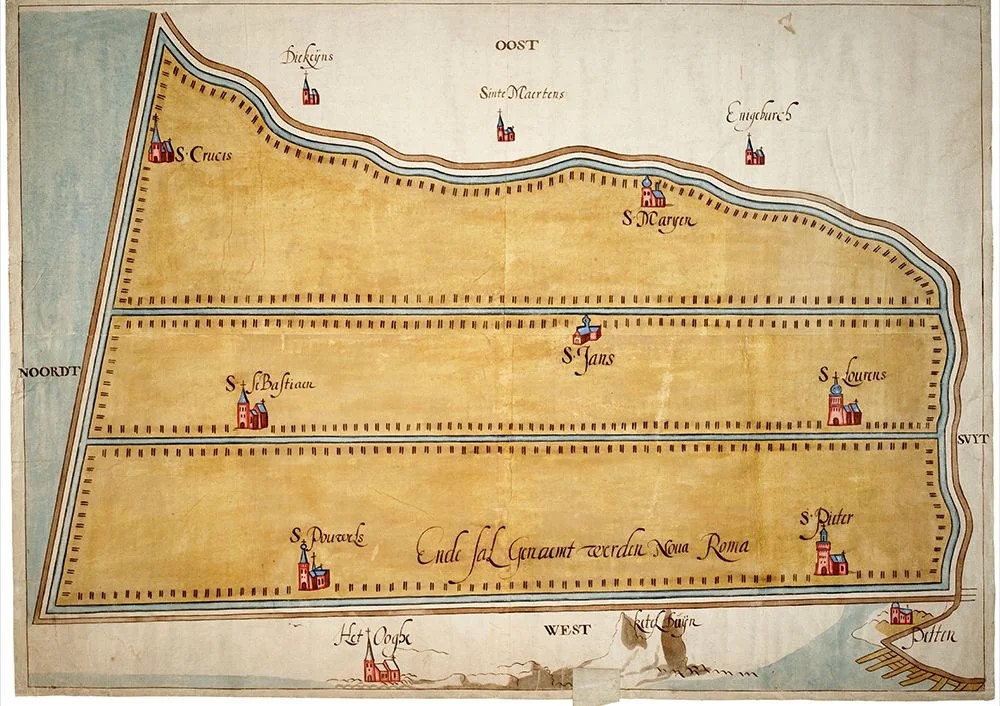 OOST
Dickeyns
Sinte Maertens
Enigeburch
S· Crucis
S· Maryen
S· Jans
NOORDT
S· SeBastiaen
S· Lourens
SVYT
S· Pouwels
S· Pieter
Ende sal Genaemt werden Noua Roma
Het Ooghe
WEST
ketel duijn
Petten